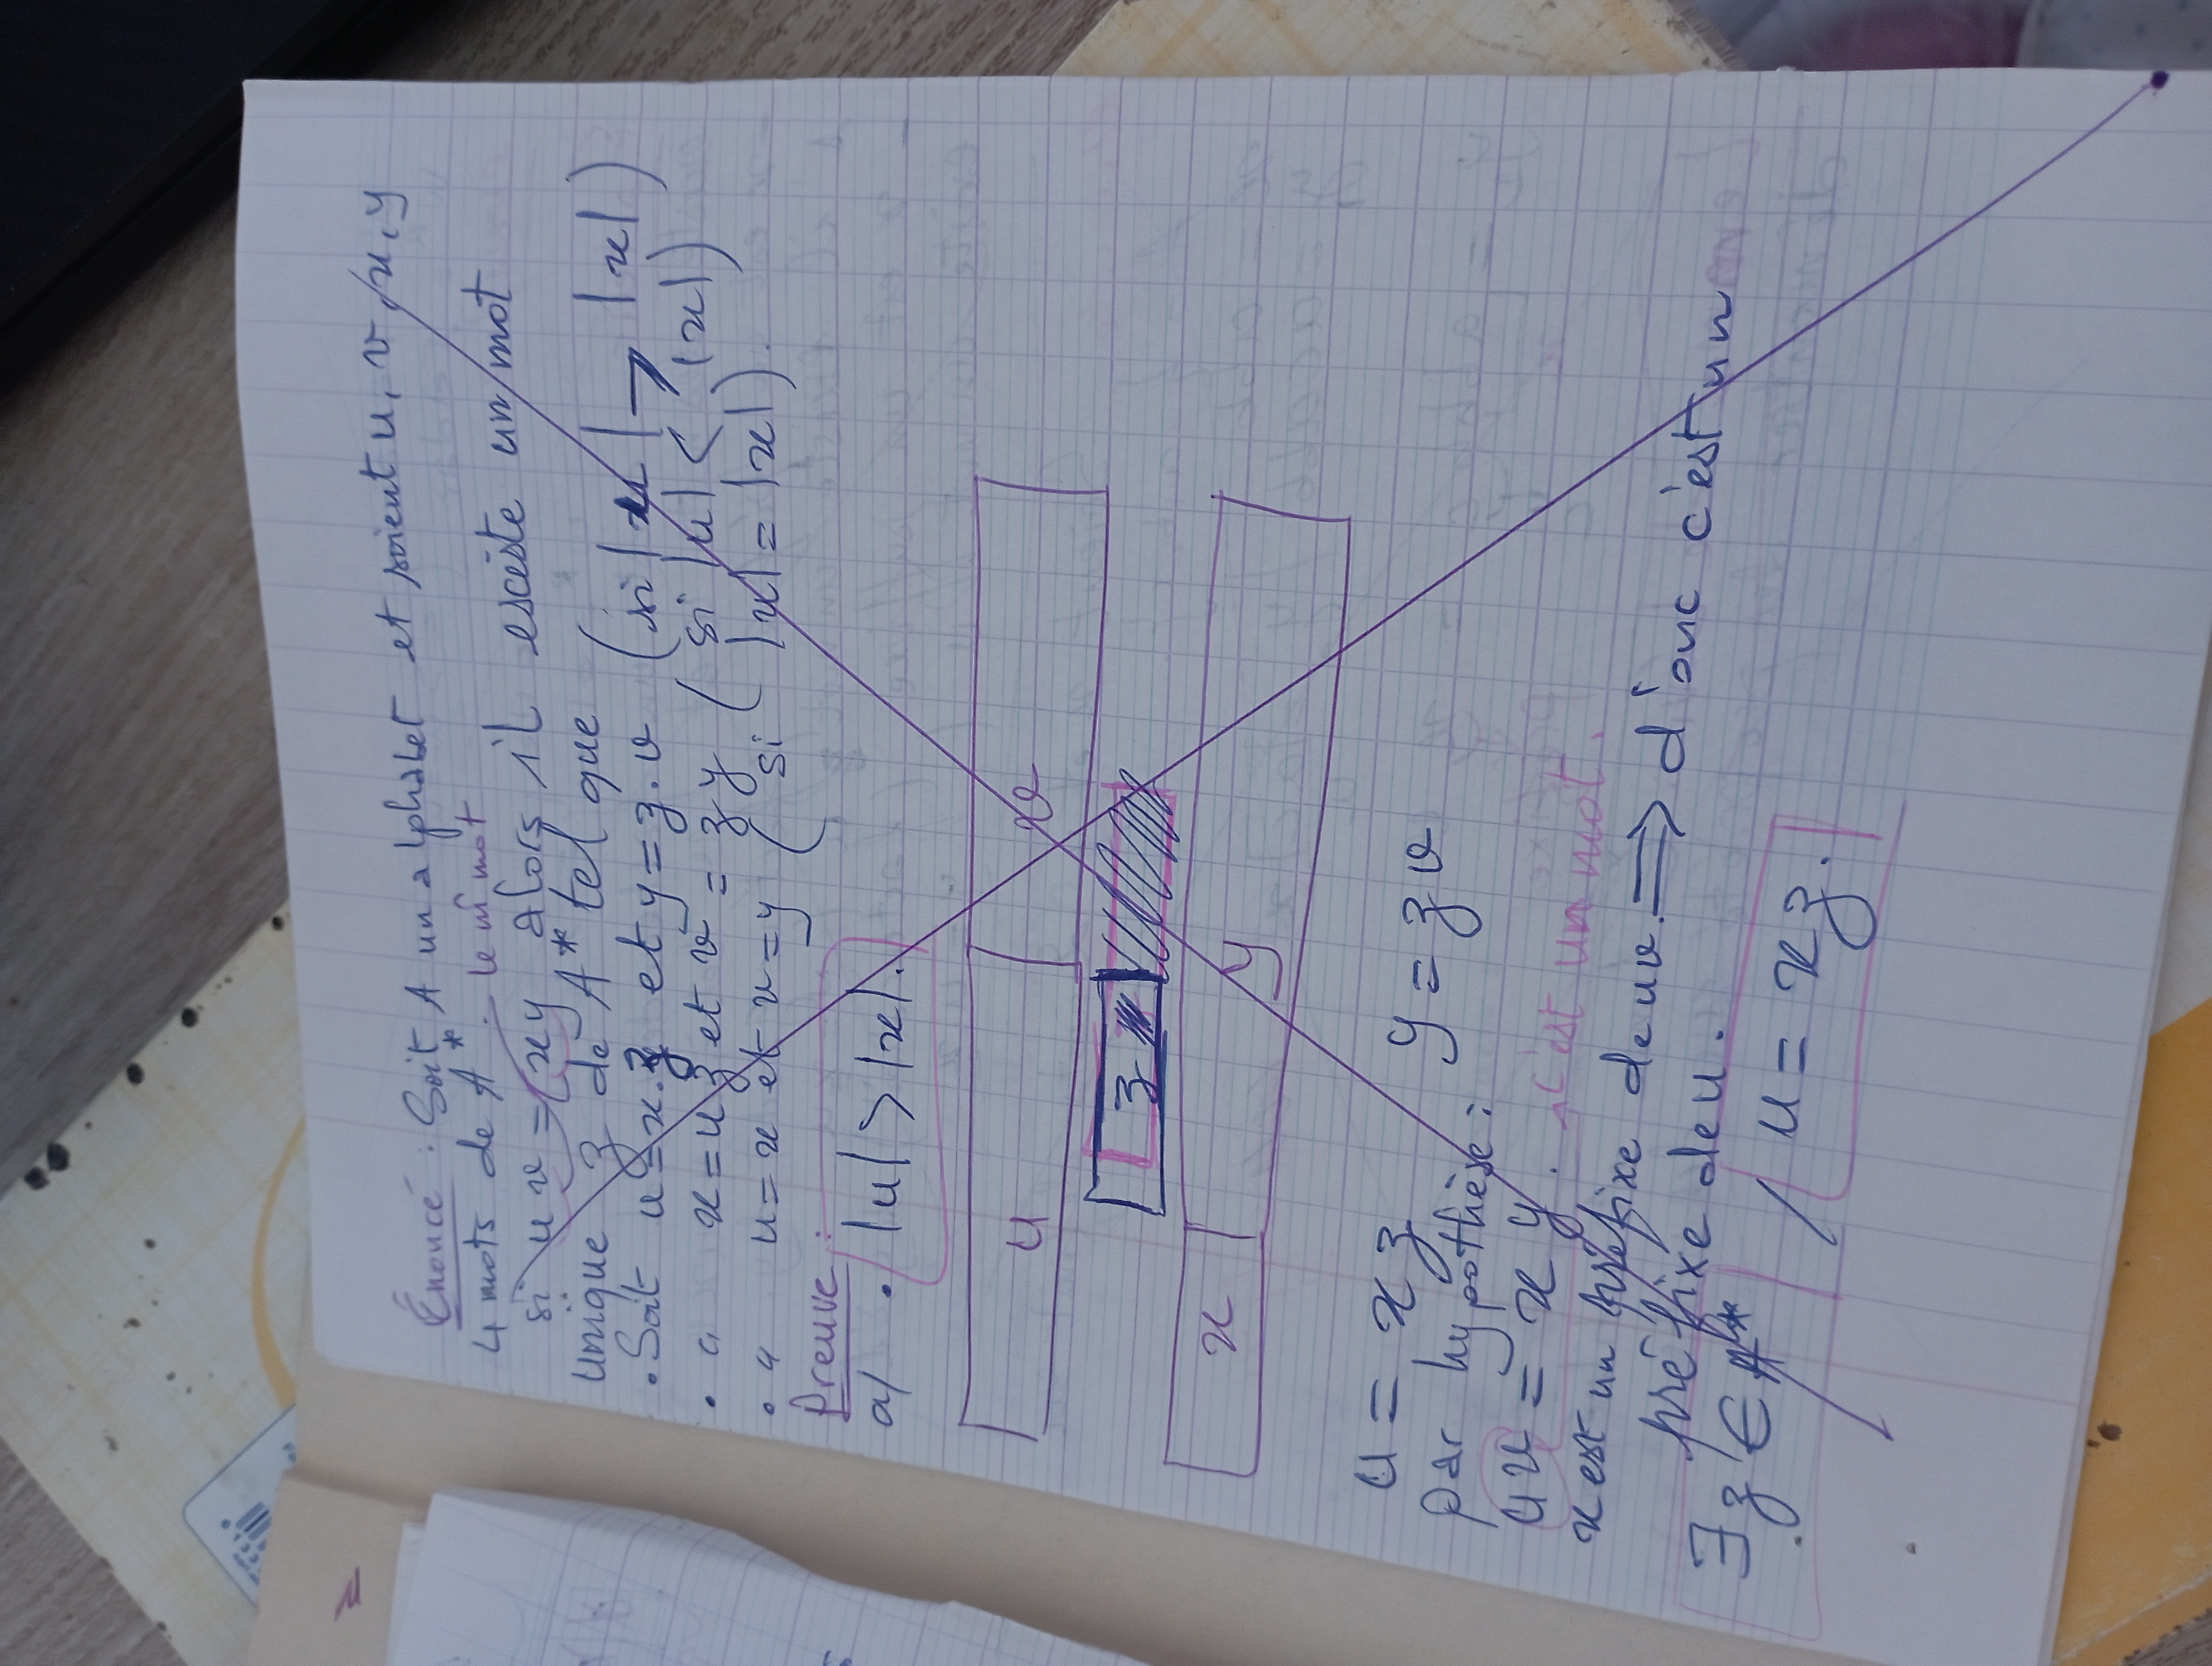 Énoncé : Soit A un alphabet et soient u, v, x, y
4 mots de A*. le m̂ mot
si uv = xy alors il existe un mot
unique z de A* tel que
. Soit u = x.z et y = z.v (si |u| > |x|)
. " x = uz et v = zy (si |u| < |x|)
. " u = x et v = y (si |u| = |x|).
Preuve :
a/ . |u| > |x|.
u v
z
x y
u = xz y = zv
par hypothèse :
uv = xy. c'est un mot.
x est un préfixe de uv. ⟹ d'onc c'est un
préfixe de u.
∃ z ∈ A* / u = xz.